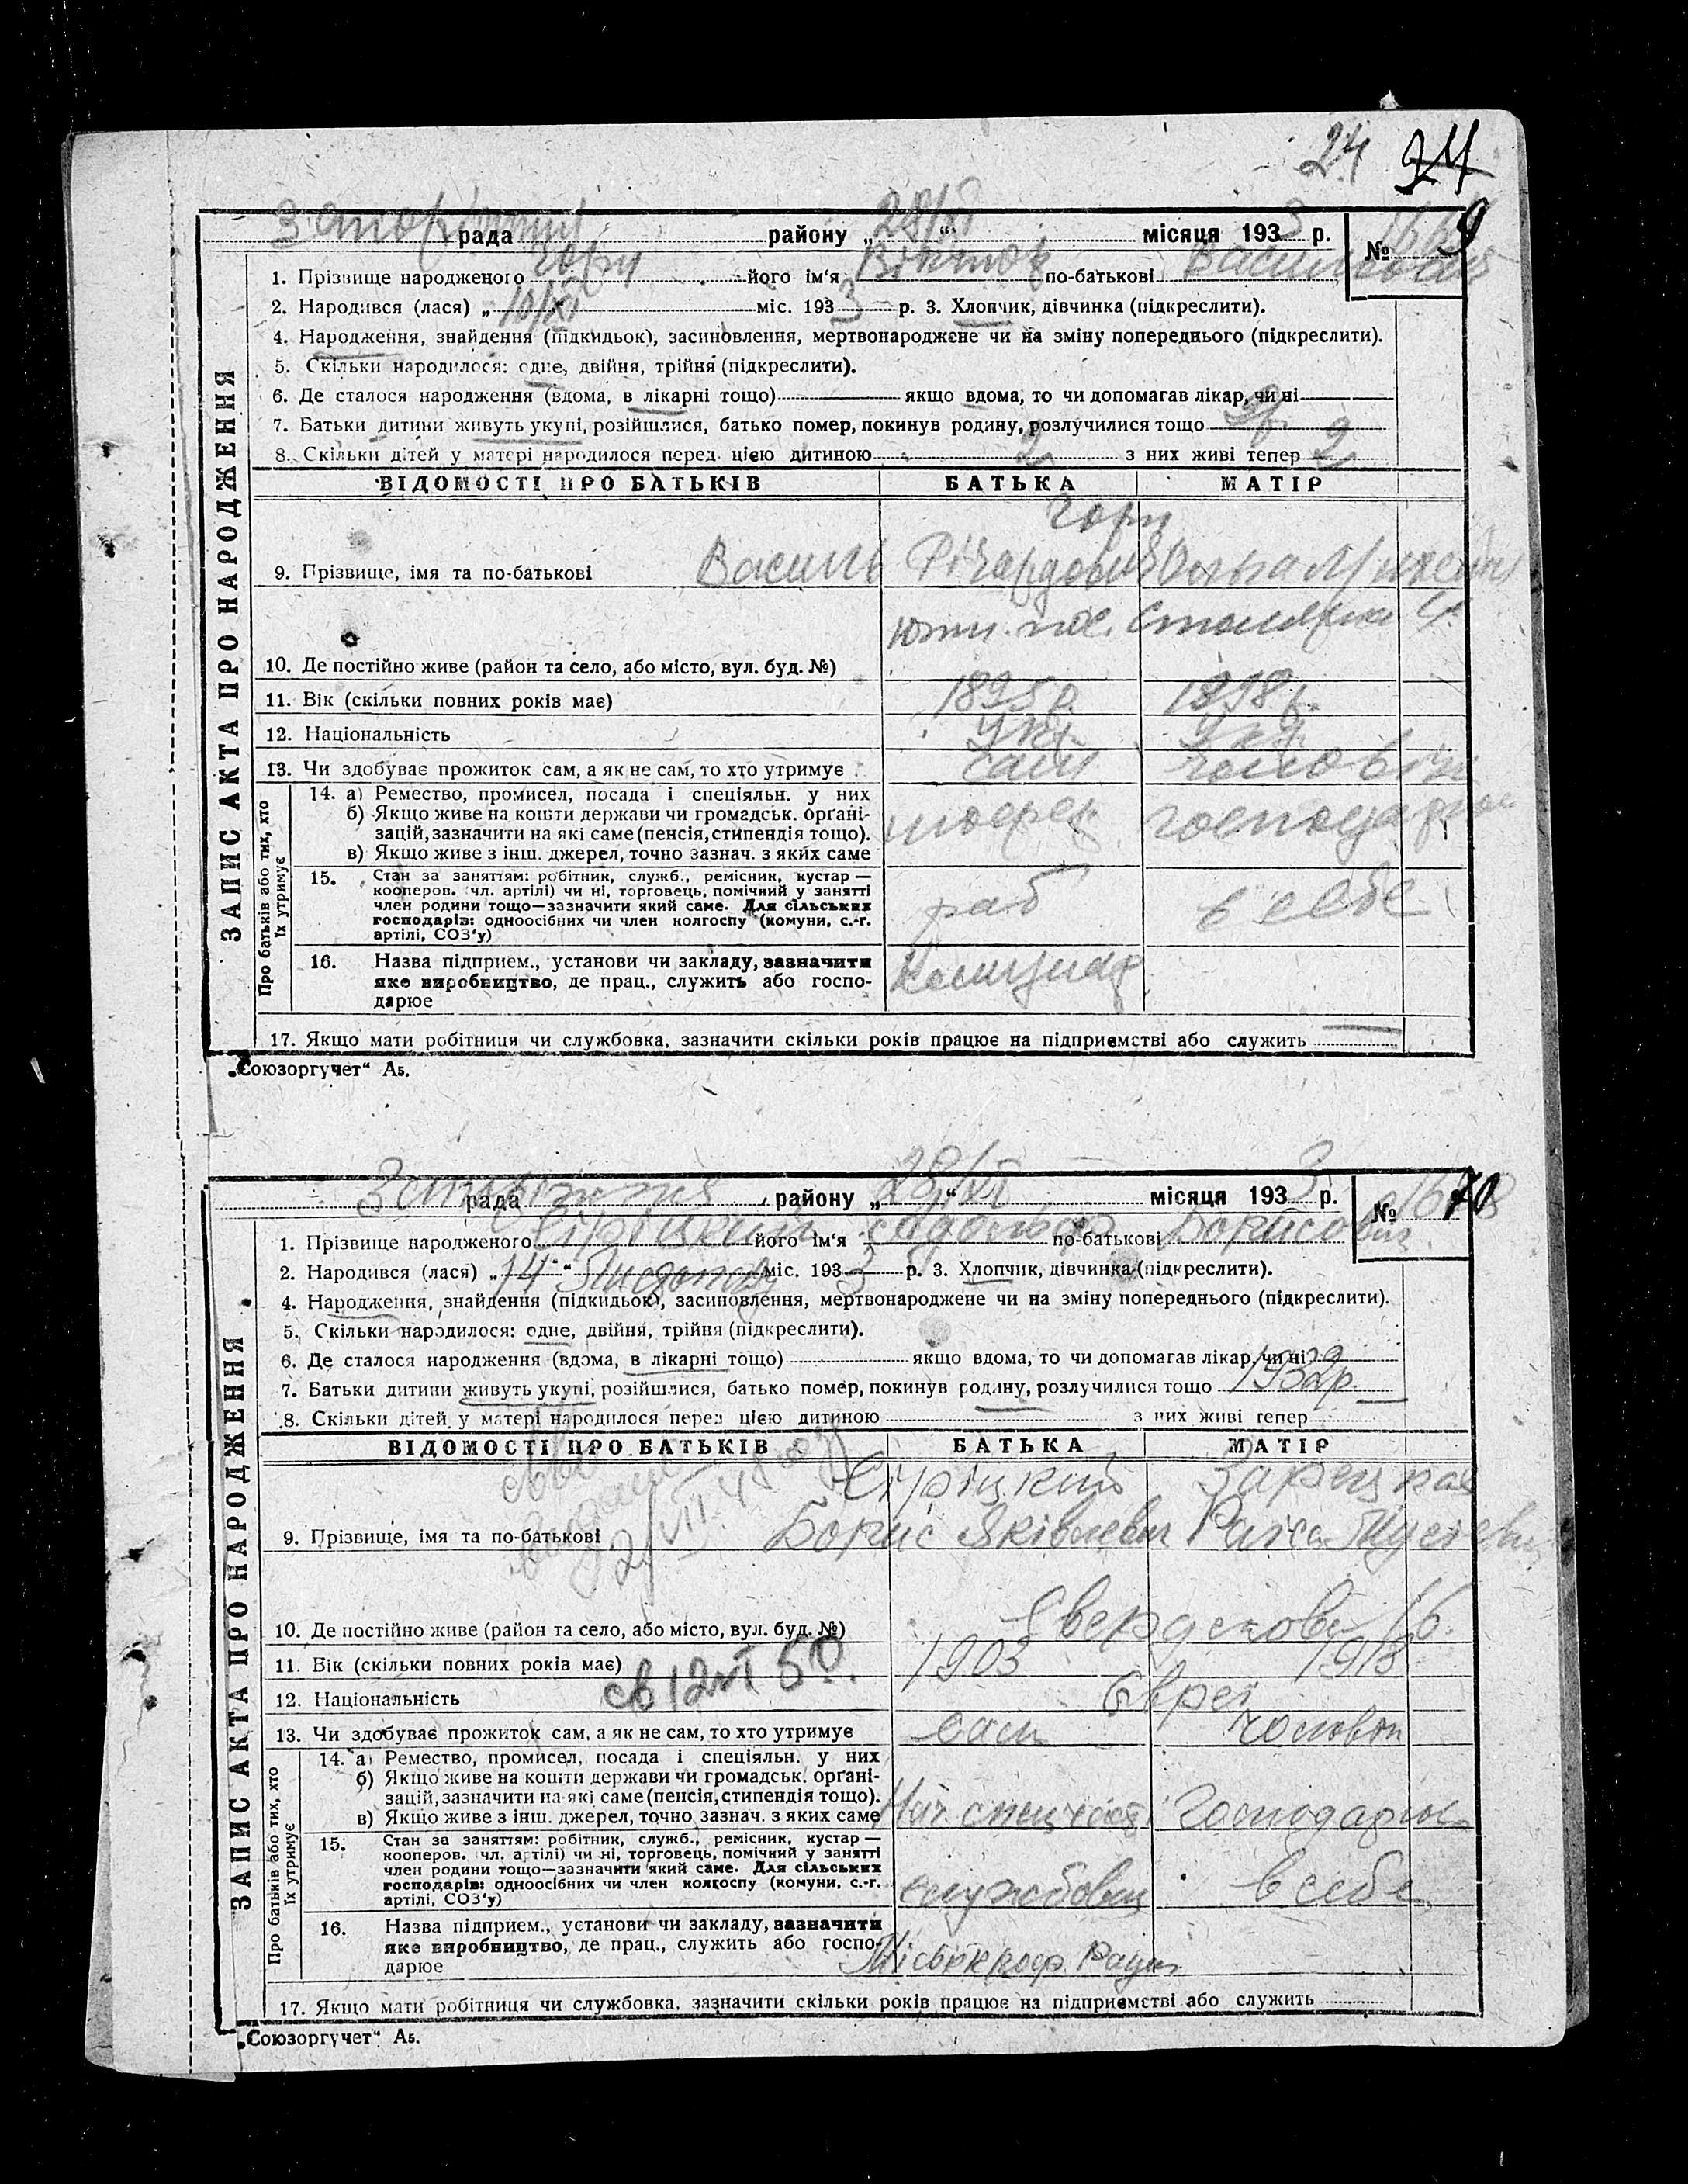 24 24
Запоріжжя рада району „28/XI“ місяця 1933 р. №
1. Прізвище народженого Горн його ім'я Віктор по-батькові Васильович
2. Народився (лася) „10/XI міс. 1933 р. 3. Хлопчик, дівчинка (підкреслити).
4. Народження, знайдення (підкидьок), засиновлення, мертвонароджене чи на зміну попереднього (підкреслити).
5. Скільки народилося: одне, двійня, трійня (підкреслити).
6. Де сталося народження (вдома, в лікарні тощо) якщо вдома, то чи допомагав лікар, чи ні
7. Батьки дитини живуть укупі, розійшлися, батько помер, покинув родину, розлучилися тощо
8. Скільки дітей у матері народилося перед цією дитиною 2 з них живі тепер 2
ВІДОМОСТІ ПРО БАТЬКІВ БАТЬКА МАТІР
Горн
9. Прізвище, імя та по-батькові Василь Річардович Ольга
10. Де постійно живе (район та село, або місто, вул. буд. №)
11. Вік (скільки повних років має) 1895 р. 1898 р.
12. Національність укр. укр.
13. Чи здобуває прожиток сам, а як не сам, то хто утримує сам чоловік
ЗАПИС АКТА ПРО НАРОДЖЕННЯ
Про батьків або тих, хто їх утримує
14. а) Ремество, промисел, посада і спеціяльн. у них
б) Якщо живе на кошти держави чи громадськ. орґані-
зацій, зазначити на які саме (пенсія, стипендія тощо).
в) Якщо живе з інш. джерел, точно зазнач. з яких саме
шофер господарює
15. Стан за заняттям: робітник, служб., ремісник, кустар—
кооперов. чл. артілі) чи ні, торговець, помічний у занятті
член родини тощо—зазначити який саме. Для сільських
господарів: одноосібних чи член колгоспу (комуни, с.-г.
артілі, СОЗ'у)
раб в себе
16. Назва підприєм., установи чи закладу, зазначити
яке виробництво, де прац., служить або госпо-
дарює
17. Якщо мати робітниця чи службовка, зазначити скільки років працює на підприємстві або служить
„Союзоргучет“ А5.
Запоріжжя рада району „28/XI“ місяця 1933 р. №
1. Прізвище народженого Сіріцкий його ім'я по-батькові Борисович
2. Народився (лася) „14“ Листопад міс. 1933 р. 3. Хлопчик, дівчинка (підкреслити).
4. Народження, знайдення (підкидьок), засиновлення, мертвонароджене чи на зміну попереднього (підкреслити).
5. Скільки народилося: одне, двійня, трійня (підкреслити).
6. Де сталося народження (вдома, в лікарні тощо) якщо вдома, то чи допомагав лікар, чи ні
7. Батьки дитини живуть укупі, розійшлися, батько помер, покинув родину, розлучилися тощо 1932р.
8. Скільки дітей у матері народилося перед цією дитиною з них живі тепер
ВІДОМОСТІ ПРО БАТЬКІВ БАТЬКА МАТІР
Сіріцкий Зарецкая
9. Прізвище, імя та по-батькові Борис Яківлевич Раіса
10. Де постійно живе (район та село, або місто, вул. буд. №) Свердлова 16.
11. Вік (скільки повних років має) 1903 1913
12. Національність Євреі
13. Чи здобуває прожиток сам, а як не сам, то хто утримує сам чоловік
ЗАПИС АКТА ПРО НАРОДЖЕННЯ
Про батьків або тих, хто їх утримує
14. а) Ремество, промисел, посада і спеціяльн. у них
б) Якщо живе на кошти держави чи громадськ. орґані-
зацій, зазначити на які саме (пенсія, стипендія тощо).
в) Якщо живе з інш. джерел, точно зазнач. з яких саме
Нач. Господарює
15. Стан за заняттям: робітник, служб., ремісник, кустар—
кооперов. чл. артілі) чи ні, торговець, помічний у занятті
член родини тощо—зазначити який саме. Для сільських
господарів: одноосібних чи член колгоспу (комуни, с.-г.
артілі, СОЗ'у)
службовець в себе
16. Назва підприєм., установи чи закладу, зазначити
яке виробництво, де прац., служить або госпо-
дарює
17. Якщо мати робітниця чи службовка, зазначити скільки років працює на підприємстві або служить
„Союзоргучет“ А5.